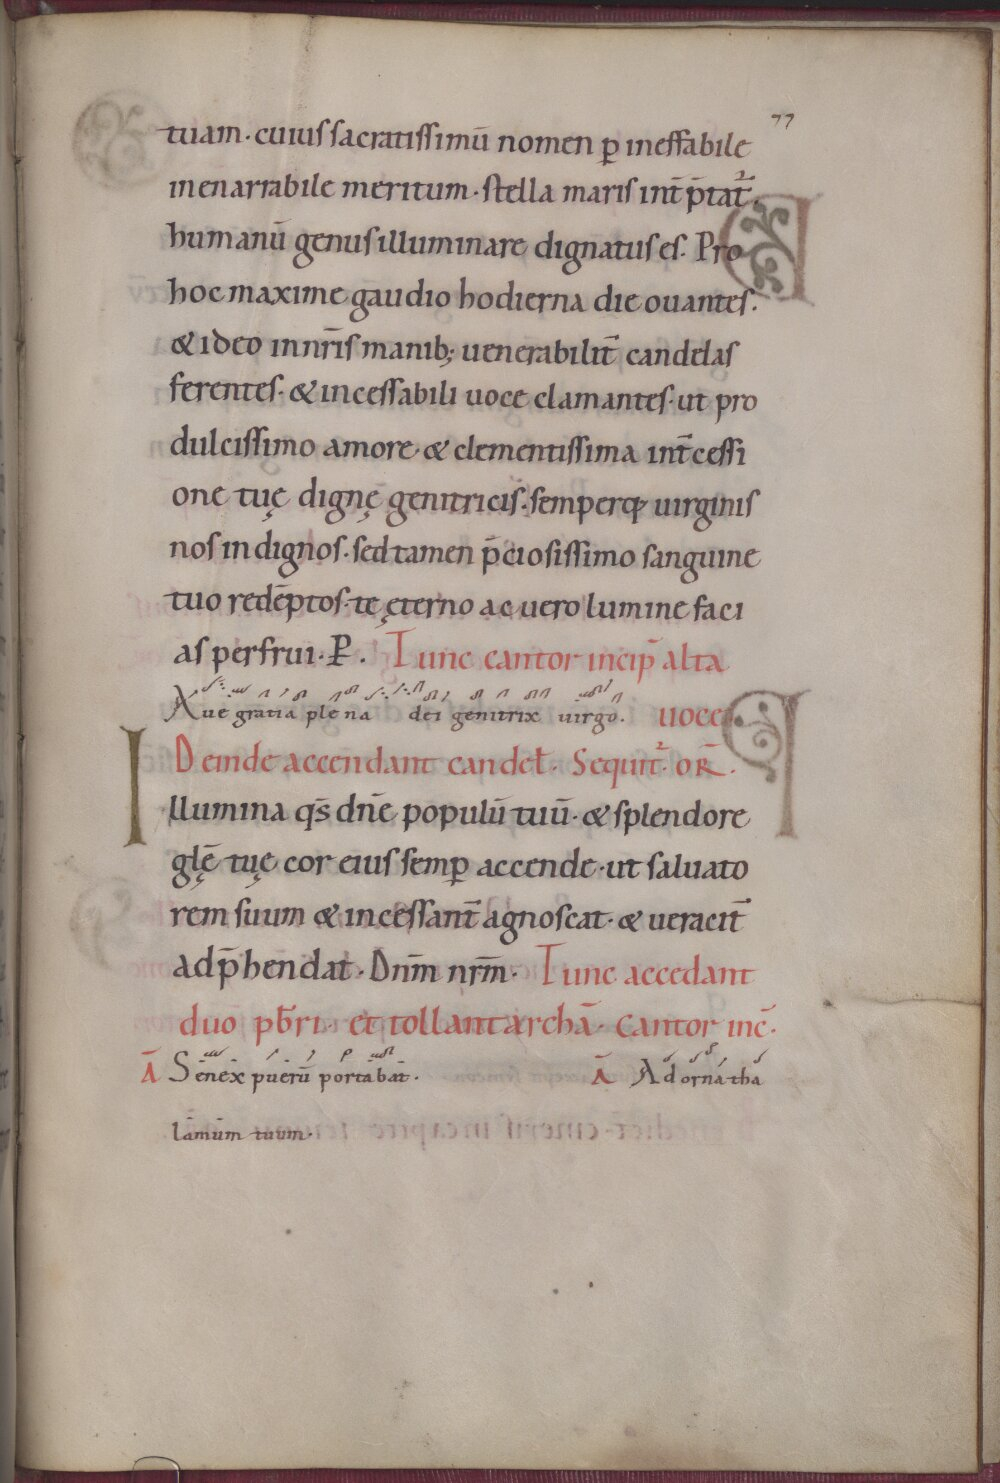 77
tuam · cuius sacratissimū nomen ꝑ ineffabile
inenarrabile meritum · stella maris int̄p̄tat᷑ ·
humanū genus illuminare dignatus es · Pro
hoc maxime gaudio hodierna die ouantes ·
& ideo in nr̄is manib; uenerabilit̄ candelas
ferentes · & incessabili uoce clamantes · ut pro
dulcissimo amore · & clementissima int̄cessi
one tuę dignę genitricis · semperq; uirginis
nos indignos · sed tamen p̄ciosissimo sanguine
tuo redēptos · te ęterno ac uero lumine faci
as perfrui · P · Tunc cantor incip̄ alta
Aue gratia plena dei genitrix uirgo · uoce
Deinde accendant candel̄ · Sequit᷑ · or̄ ·
Illumina qs̄ dn̄e populū tuū · & splendore
glę̄ tuę cor eius semꝑ accende · ut saluato
rem suum & incessant̄ agnoscat · & ueracit̄
adp̄hendat · Dn̄m nr̄m · Tunc accedant
duo pb̄ri · et tollant archā · Cantor inc̄ ·
Ā Senex puerū portabat · Ā Adorna tha
lamum tuum ·